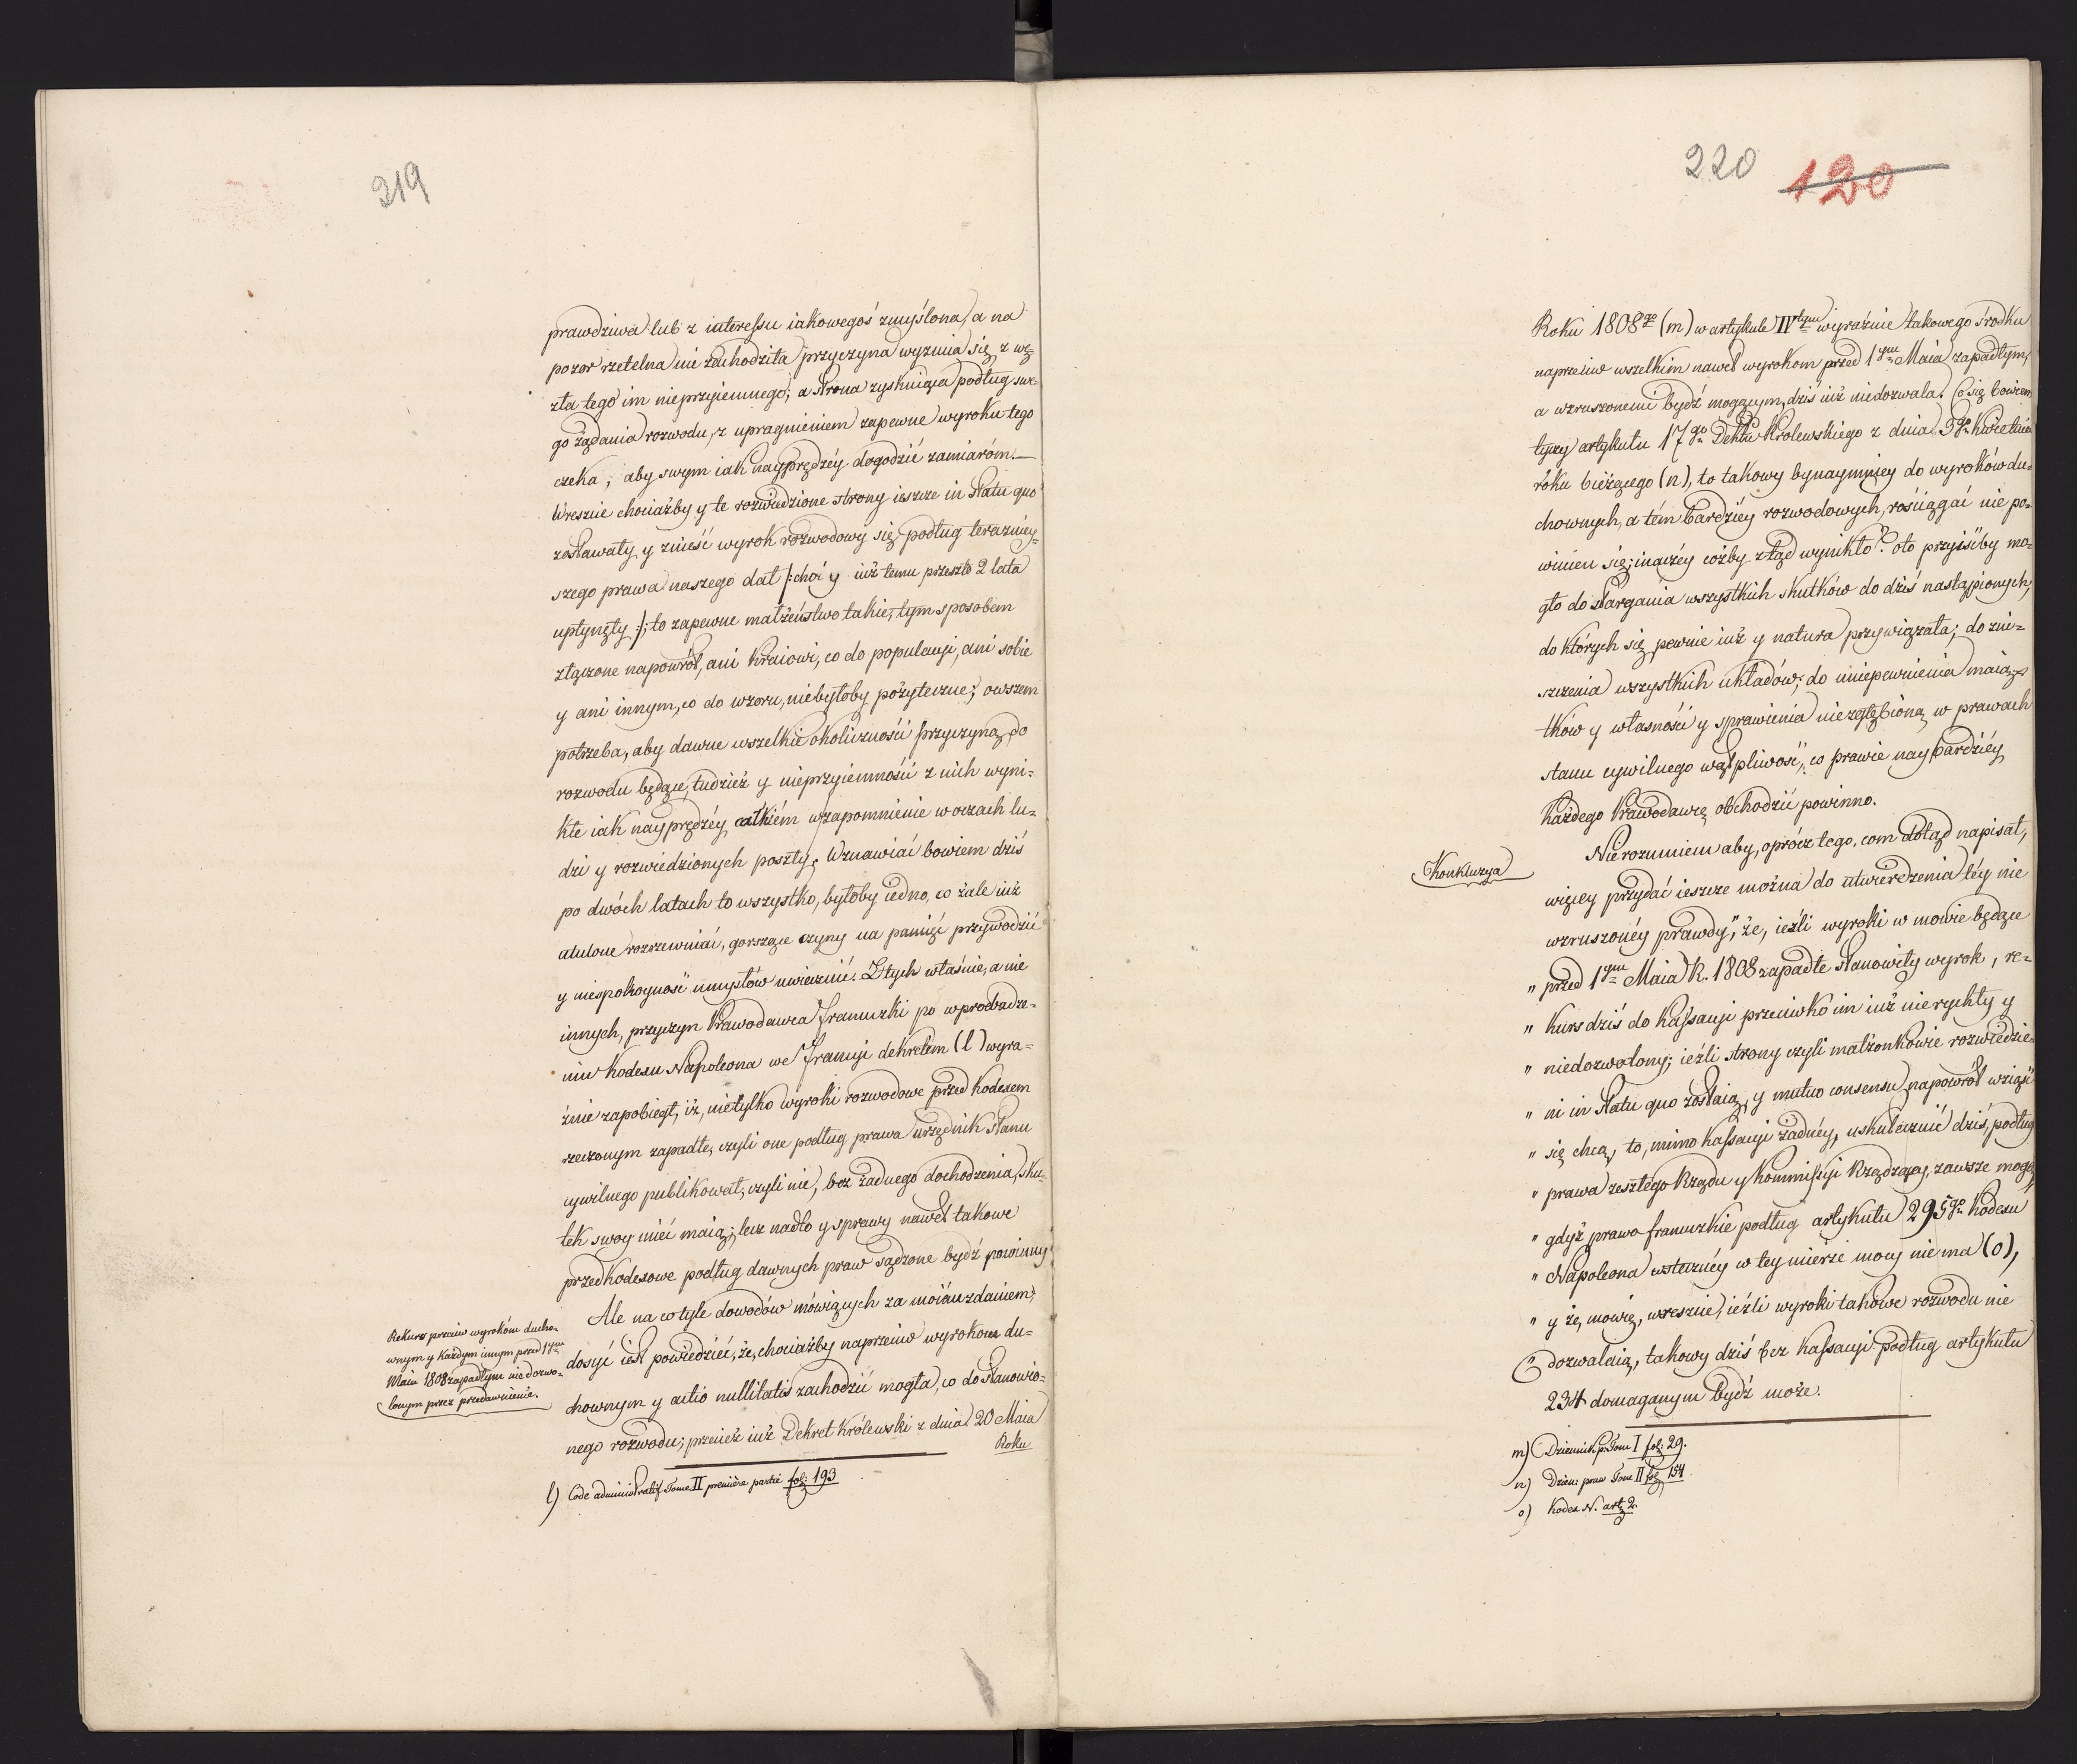 219
prawdziwa lub z interessu iakowegoś zmyślona, a na
pozor rzetelna nie zachodziła przyczyna wyzwia się z wę=
zła tego im nieprzyiemnego; a strona zyskuiąca podług swe=
go żądania rozwodu, z upragnieniem zapewne wyroku tego
czeka, aby swym iak nayprędzéy dogodzić zamiaróm.—
Wreszcie chociażby y te rozwiedzione strony ieszcze in statu quo
zostawały y znieść wyrok rozwodowy się podług teraźniey=
szego prawa naszego dał /:choć y iuż temu przeszło 2 lata
upłynęły:/; to zapewne małżeństwo takie, tym sposobem
złączone napowrót, ani Kraiowi, co do populacyi, ani sobie
y ani innym, co do wzoru, niebyłoby pożyteczne; owszem
potrzeba, aby dawne wszelkie okoliczności przyczyną do
rozwodu będące, tudzież y nieprzyiemności z nich wyni=
kłe iak nayprędzéy całkiém w zapomnienie w oczach lu=
dzi y rozwiedzionych poszły. Wznawiać bowiem dziś
po dwóch latach to wszystko, byłoby iedno, co żale iuż
utulone rozrzewniać, gorszące czyny na pamięć przywodzić
y niespokoyność umysłów uwiecznić. Z tych właśnie, a nie
innych, przyczyn Prawodawca Francuzki po wprowadze=
niu Kodexu Napoleona we Francyi dekretem (l) wyra=
źnie zapobiegł, iż, nietylko wyroki rozwodowe przed Kodexem
rzeczonym zapadłe, czyli one podług prawa urzędnik stanu
cywilnego publikował, czyli nie, bez żadnego dochodzenia, sku=
tek swoy mieć maią; lecz nadto y sprawy nawet takowe
przedkodexowe podług dawnych praw sądzone bydź powinny
Ale na co tyle dowodów mówiących za moiém zdaniem;
Rekurs przeciw wyrokóm ducho=
wnym y każdym innym przed 1ym
Maia 1808 zapadłym niedozwo=
lonym przez przedawnienie.
dosyć iest powiedzieć, że, chociażby naprzeciw wyrokom du=
chownym y actio nullitatis zachodzić mogła, co do stanowio=
nego rozwodu; przecież iuż Dekret Królewski z dnia 20 Maia
Roku
l) Code administratif Tome II première partie fol: 193
220 120
Roku 1808go (m) w artykule IVtym wyraźnie takowego środku
naprzeciw wszelkim nawet wyrokom przed 1ym Maia zapadłym,
a wzruszonemi bydź mogącym, dziś iuż niedozwala. Co się bowiem
tyczy artykułu 17go Dektu Krolewskiego z dnia 3go Kwietnia
roku bieżącego (n), to takowy bynaymniey do wyroków du=
chownych, a tém bardziéy rozwodowych, rościągać nie po=
winien się; inaczéy cóżby ztąd wynikło? oto przyiśćby mo=
gło do stargania wszystkich skutków do dziś nastąpionych,
do których się pewnie iuż y natura przywiązała; do zni=
szczenia wszystkich układów; do niepewnienia maią=
tków y własności y sprawienia niezgłębioną w prawach
stanu cywilnego wątpliwość, co prawie naybardziéy
każdego Prawodawcę obchodzić powinno.
Konkluzya
Nie rozumiem aby, oprócz tego, com dotąd napisał,
więcey przydać ieszcze można do utwierdzenia téy nie
wzruszonéy prawdy, że, ieźli wyroki w mowie będące
„ przed 1ym Maia R. 1808 zapadłe stanowiły wyrok, re=
„ kurs dziś do Kassacyi przeciwko im iuż nierychły y
„ niedozwolony; ieźli strony czyli małżonkowie rozwiedzie=
„ ni in statu quo zostaią, y mutuo consensu napowrót wziąść
„ się chcą, to, mimo Kassacyi żadnéy, uskutecznić dziś, podług
„ prawa zeszłego Rządu y Kommissyi Rządzącey, zawsze mogą
„ gdyż prawo francuzkie podług artykułu 295go Kodexu
„ Napoleona wstecznéy w tey mierze mocy nie ma (o),
„ y że, mowię, wreszcie, ieźli wyroki takowe rozwodu nie
„ dozwalaią, takowy dziś bez Kassacyi podług artykułu
234 domaganym bydź może.
m) Dziennik p. Tom I fol: 29.
n) Dzien: praw Tom II fol 154
o) Kodex N. art 2.